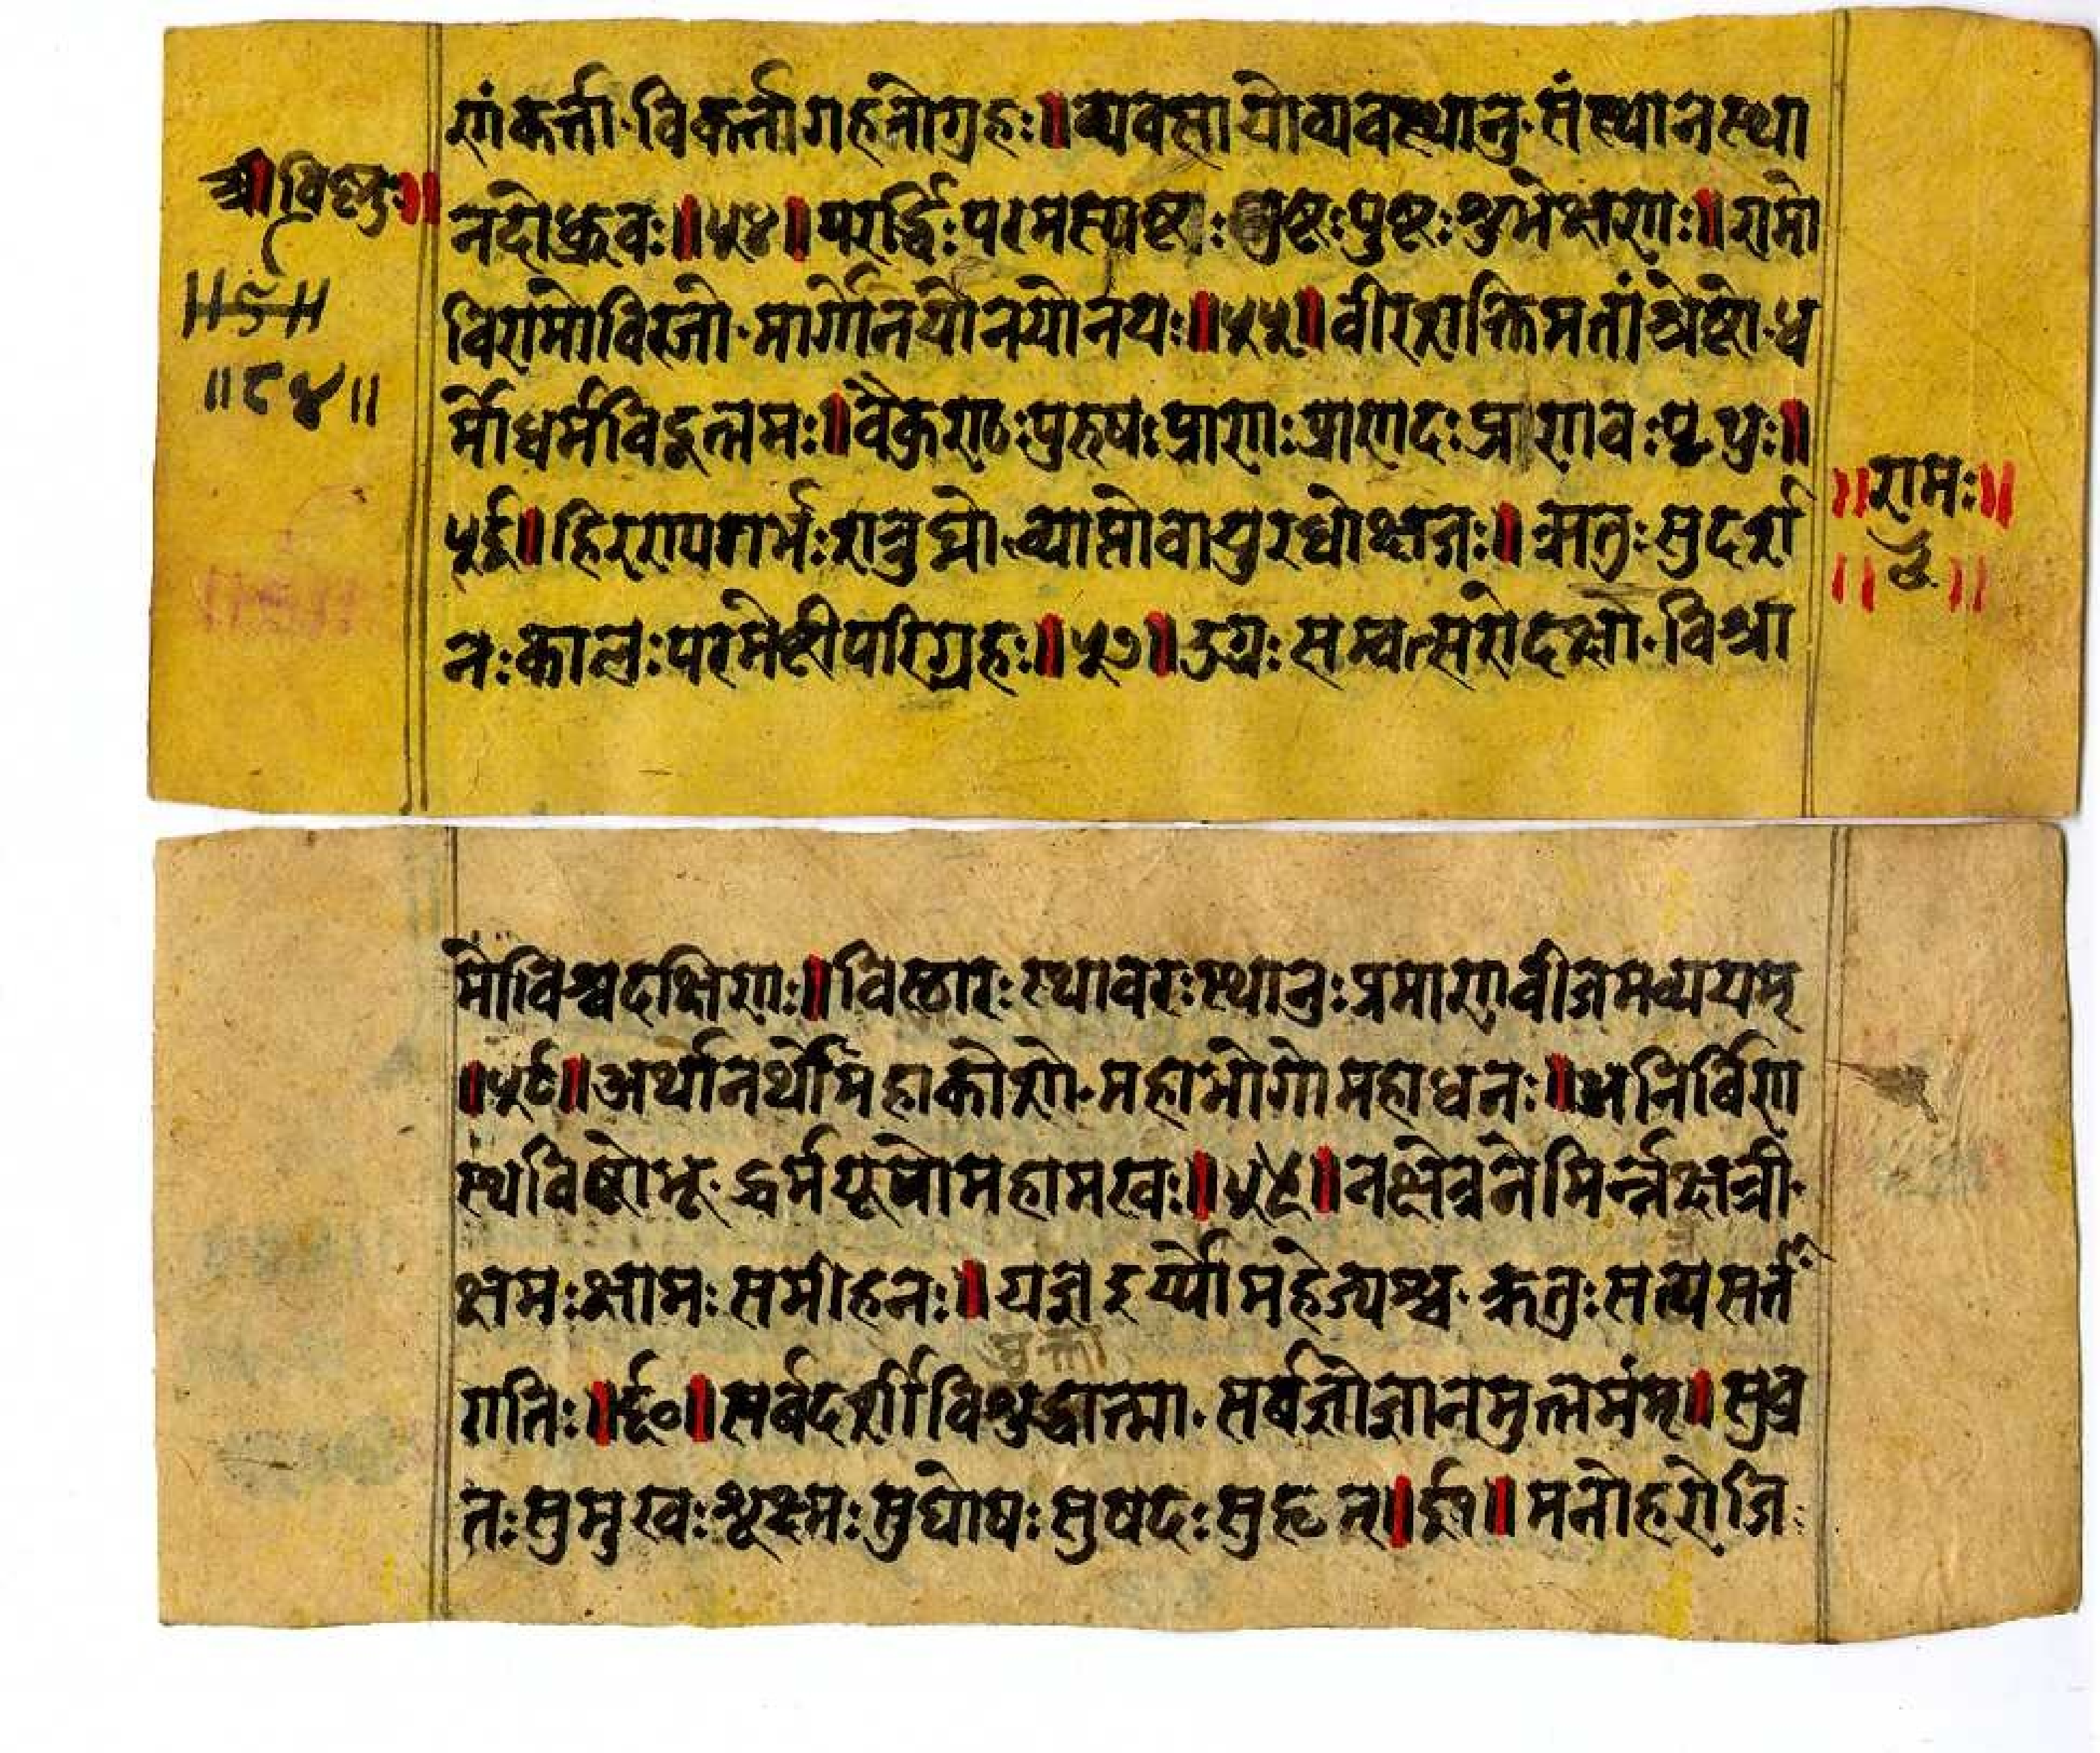 श्रीविष्णुः॥
॥८४॥
रणंकर्त्ता-विकर्त्तागहनोगुहः॥व्यवसायोव्यवस्थानु-संस्थानस्था
नदोध्रुवः॥५४॥परर्द्धिःपरमस्पष्टः तुष्टःपुष्टःशुभेक्षणः॥रामो
विरामोविरजो-मार्गोनेयोनयोनयः॥५५॥वीरशक्तिमतांश्रेष्टो-ध
र्मोधर्मविदुत्तमः॥वैकुण्ठःपुरुषःप्राणःप्राणदःप्रणवःपृथुः॥
५६॥हिरण्यगर्भःशत्रुघ्नो-व्याप्तोवायुरधोक्षजः॥ऋतुःसुदर्श
नःकालःपरमेष्टीपरिग्रहः॥५७॥उग्रःसम्वत्सरोदक्षो-विश्रा
॥रामः॥
मोविश्वदक्षिणः॥विस्तारःस्थावरःस्थानुःप्रमाणवीजमव्ययम्
॥५८॥अर्थोनर्थोमहाकोशो-महाभोगोमहाधनः॥अनिर्विण
स्थविष्टोभू-र्द्धर्मयूपोमहामखः॥५९॥नक्षेत्रनेमिर्न्नक्षत्री-
क्षमःक्षामःसमीहनः॥यज्ञइर्ज्योमहेज्यश्च-क्रतुःसत्यसतां
गतिः॥६०॥सर्वदर्शीविशुद्धात्मा-सर्वज्ञोज्ञानमुत्तमंम्॥सुव्र
तःसुमुखःशूक्ष्मःसुघोषःसुषदःसुहृत्॥६१॥मनोहरोजि